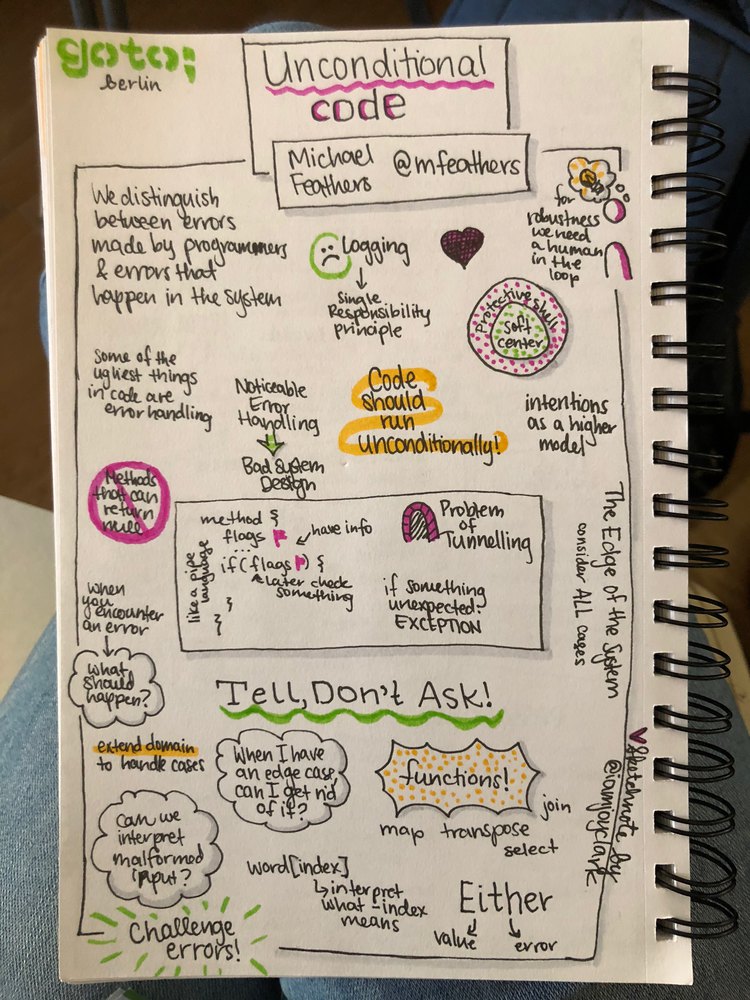 goto;
Berlin
Unconditional
code
Michael
Feathers
@mfeathers
We distinguish
between errors
made by programmers
& errors that
happen in the system
Logging
Single
Responsibility
principle
for
robustness
we need
a human
in the
loop
Protective shell
Soft
center
Some of the
ugliest things
in code are
error handling
Noticeable
Error
Handling
Bad System
Design
Code
should
run
unconditionally!
intentions
as a higher
model
Methods
that can
return
null
like a pipe
language
method {
flags
have info
...
if(flags ) {
later check
something
}
}
Problem
of
Tunnelling
if something
unexpected:
EXCEPTION
The Edge of the System
consider ALL cases
when
you encounter
an error
what
should
happen?
Tell, Don't Ask!
extend domain
to handle cases
When I have
an edge case
can I get rid
of it?
functions!
map transpose
join
select
Can we
interpret
malformed
input?
word[index]
interpret
what -index
means
Either
value
error
Challenge
errors!
Sketchnote by
@iamjoyclark